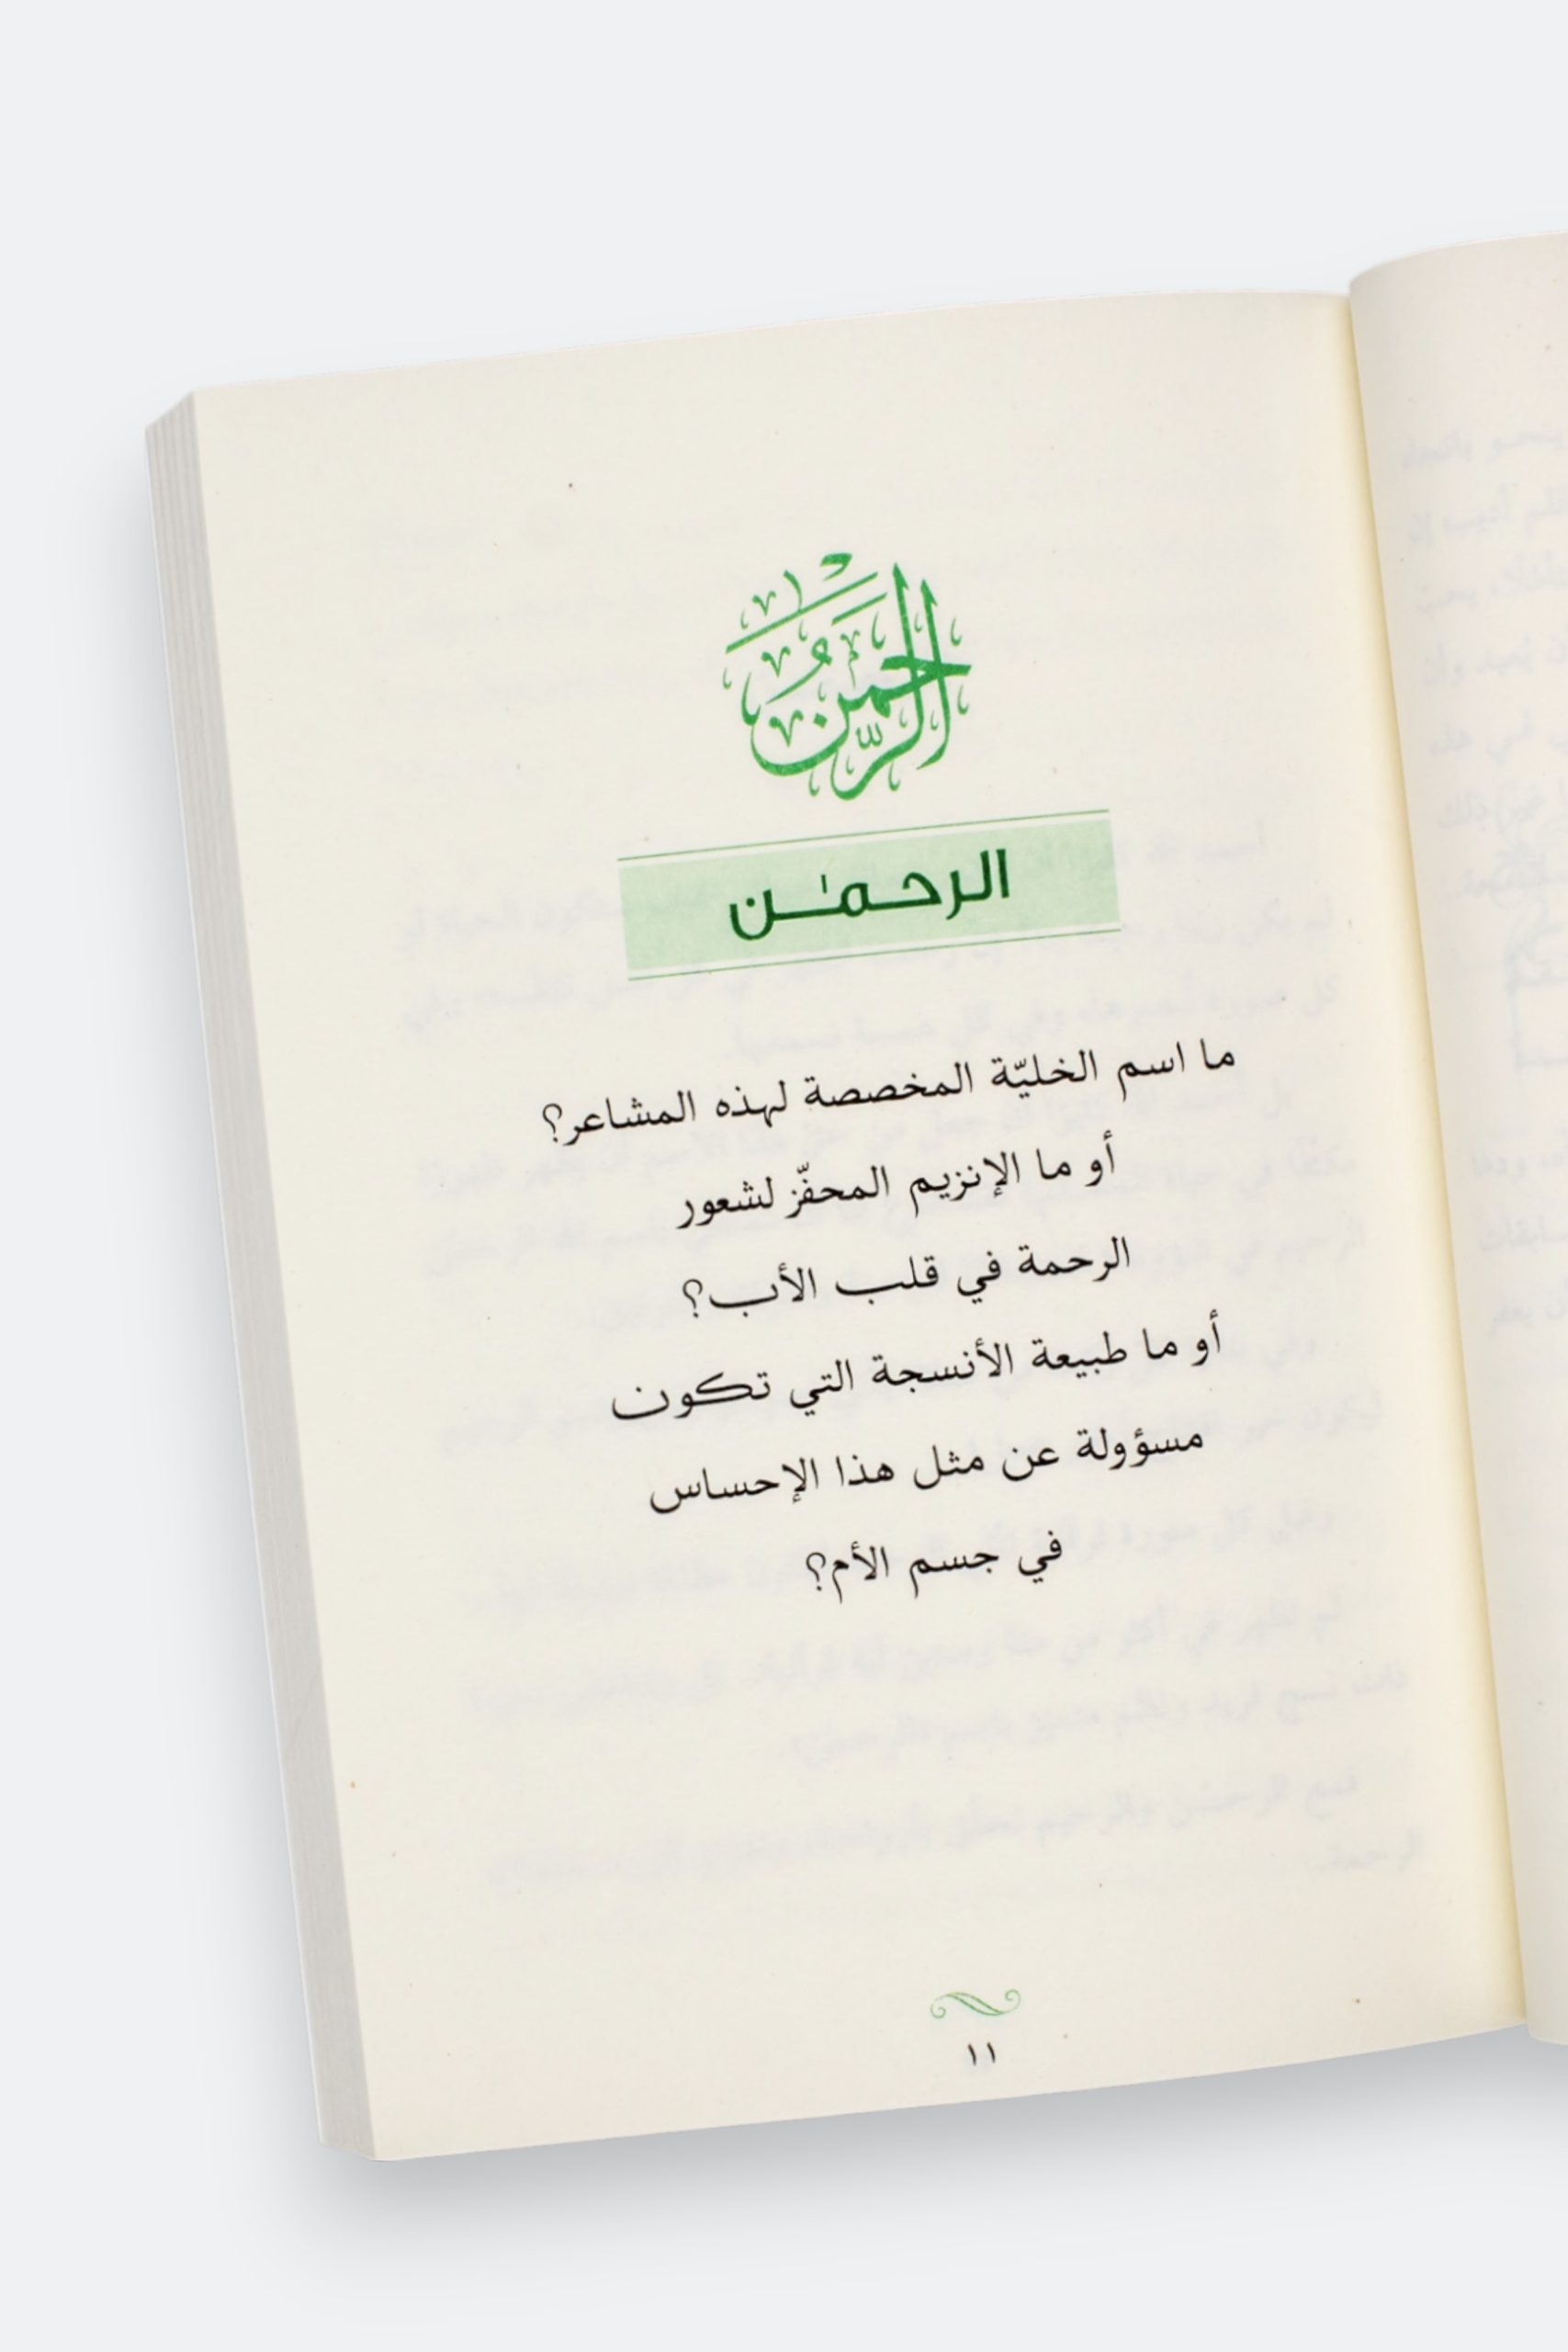 الرَّحْمَنُ
الرحمـٰـن
ما اسم الخليّة المخصصة لهذه المشاعر؟
أو ما الإنزيم المحفّز لشعور
الرحمة في قلب الأب؟
أو ما طبيعة الأنسجة التي تكون
مسؤولة عن مثل هذا الإحساس
في جسم الأم؟
١١